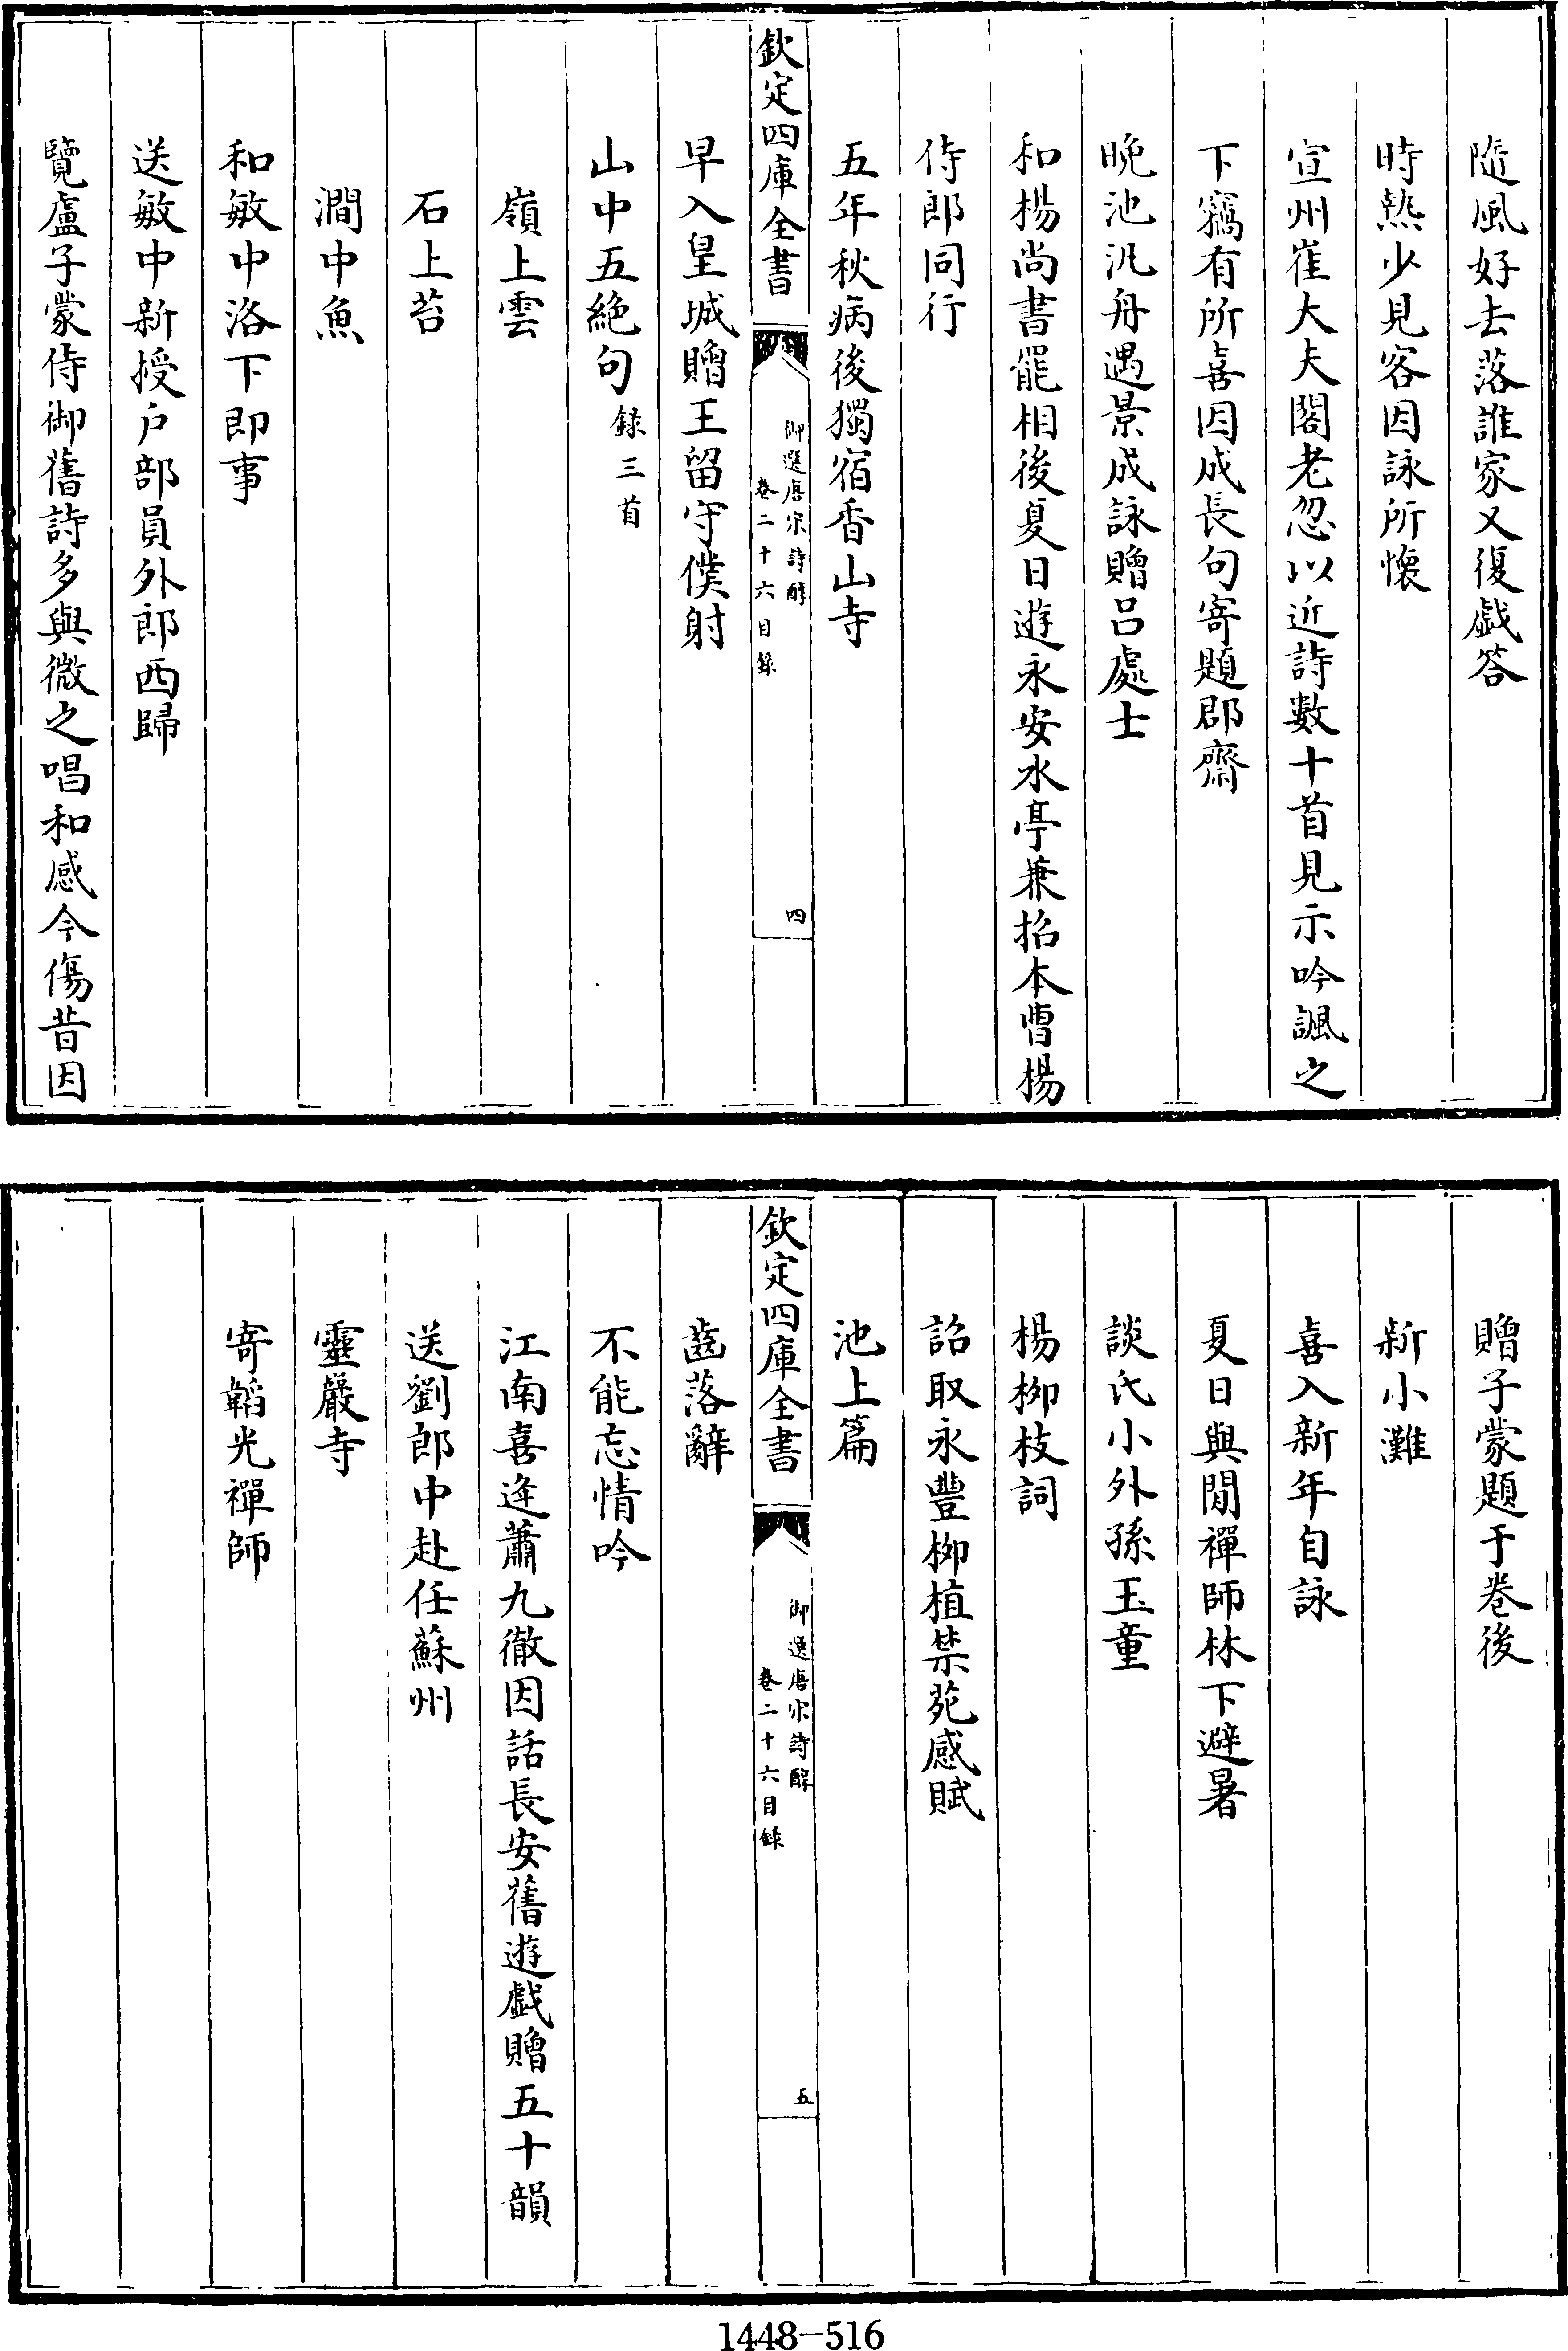 隨風好去落誰家又復戯答
時熱少見客因詠所懷
宣州崔大夫閣老忽以近詩數十首見示吟諷之
下竊有所喜因成長句寄題郡齋
晚池汎舟遇景成詠贈吕處士
和楊尚書罷相後夏日遊永安水亭兼招本曹楊
侍郎同行
五年秋病後獨宿香山寺
欽定四庫全書
御選唐宋詩醇
卷二十六目録
四
早入皇城贈王留守僕射
山中五絶句録三首
嶺上雲
石上苔
澗中魚
和敏中洛下即事
送敏中新授户部員外郎西歸
覽盧子蒙侍御舊詩多與微之唱和感今傷昔因
贈子蒙題于卷後
新小灘
喜入新年自詠
夏日與閒禪師林下避暑
談氏小外孫玉童
楊柳枝詞
詔取永豐柳植禁苑感賦
池上篇
欽定四庫全書
御選唐宋詩醇
卷二十六目録
五
齒落辭
不能忘情吟
江南喜逢蕭九徹因話長安舊遊戯贈五十韻
送劉郎中赴任蘇州
靈巖寺
寄韜光禪師
1448-516